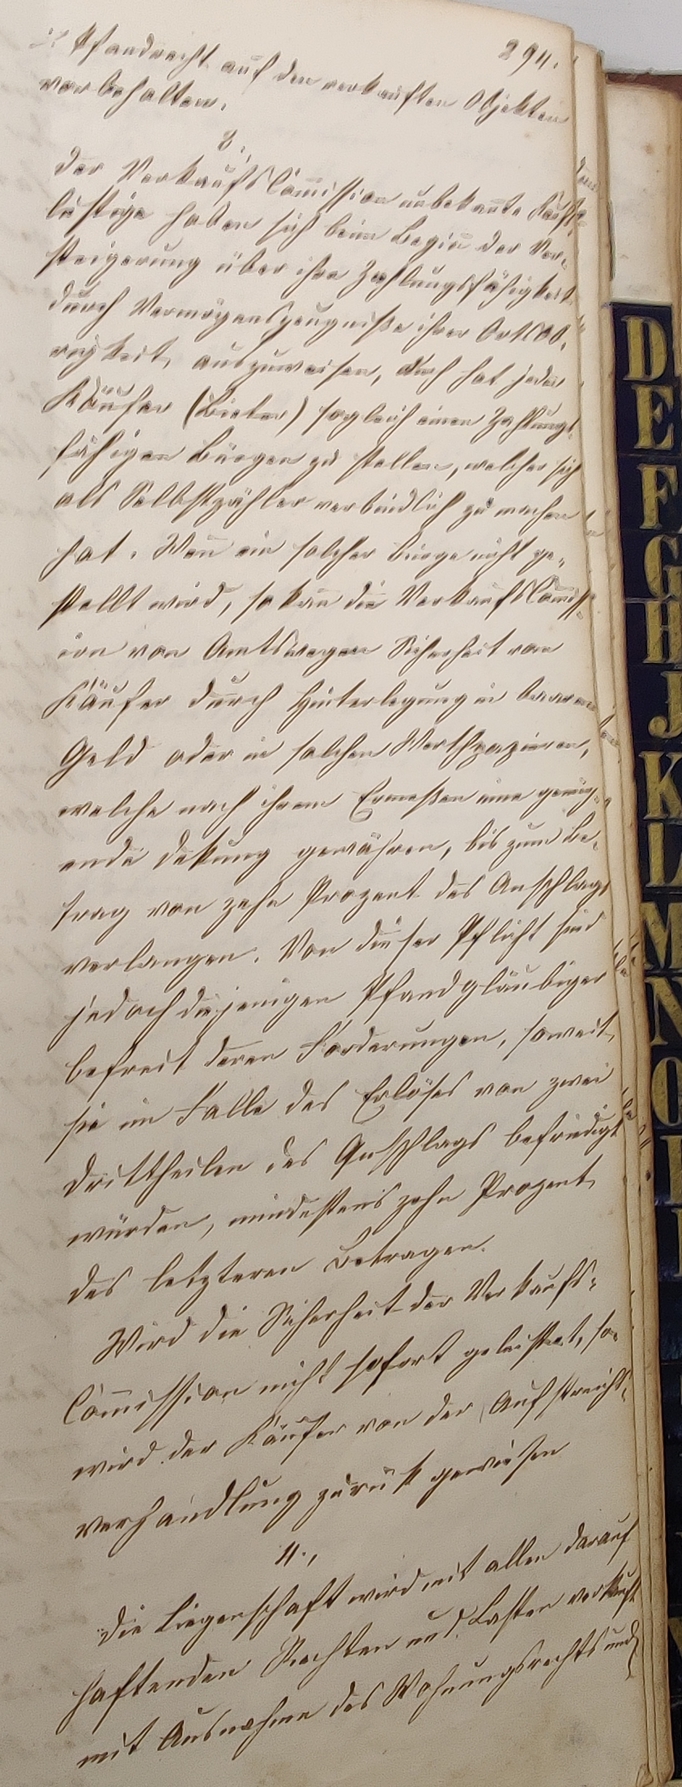 294.
Pfandrecht auf den verkauften Objekten
vorbehalten.
8.,
Der Verkaufs Com̄ission unbekan̄te Kaufs-
lustige haben sich beim Begin̄ der Ver-
steigerung über ihre Zahlungsfähigkeit
durch Vermögenszeugniße ihrer Ortsob-
rigkeit, auszuweisen, auch hat jeder
Käufer (Bieter) sogleich einen Zahlungs-
fähigen Bürgen zu stellen, welcher sich
als Selbstzahler verbindlich zu machen
hat. Wen̄ ein solcher Bürge nicht ge-
stellt wird, so kan̄ die Verkaufs Com̄iss-
ion von Amtswegen Sicherheit vom
Käufer durch Hinterlegung in baarem
Geld oder in solchen Werthpapieren,
welche nach ihrem Ermeßen eine genüg-
ende Dekung gewähren, bis zum Be-
trag von zehn Prozent des Anschlags
verlangen. Von dieser Pflicht sind
jedoch diejenigen Pfandgläubiger
befreit deren Forderungen, soweit
sie im Falle des Erlöses von zwei
Drittheilen des Anschlags befriedigt
würden, mindestens zehn Prozent
des letzteren betragen.
Wird die Sicherheit der Verkaufs-
Com̄ission nicht sofort geleistet, so
wird der Käufer von der Aufstreichs-
verhandlung zurük gewiesen
Die Liegenschaft wird mit allen darauf
haftenden Rechten und Lasten verkauft
mit Ausnahme des Wohnungsrechts und
D
E
F
G
H
J
K
L
M
N
O